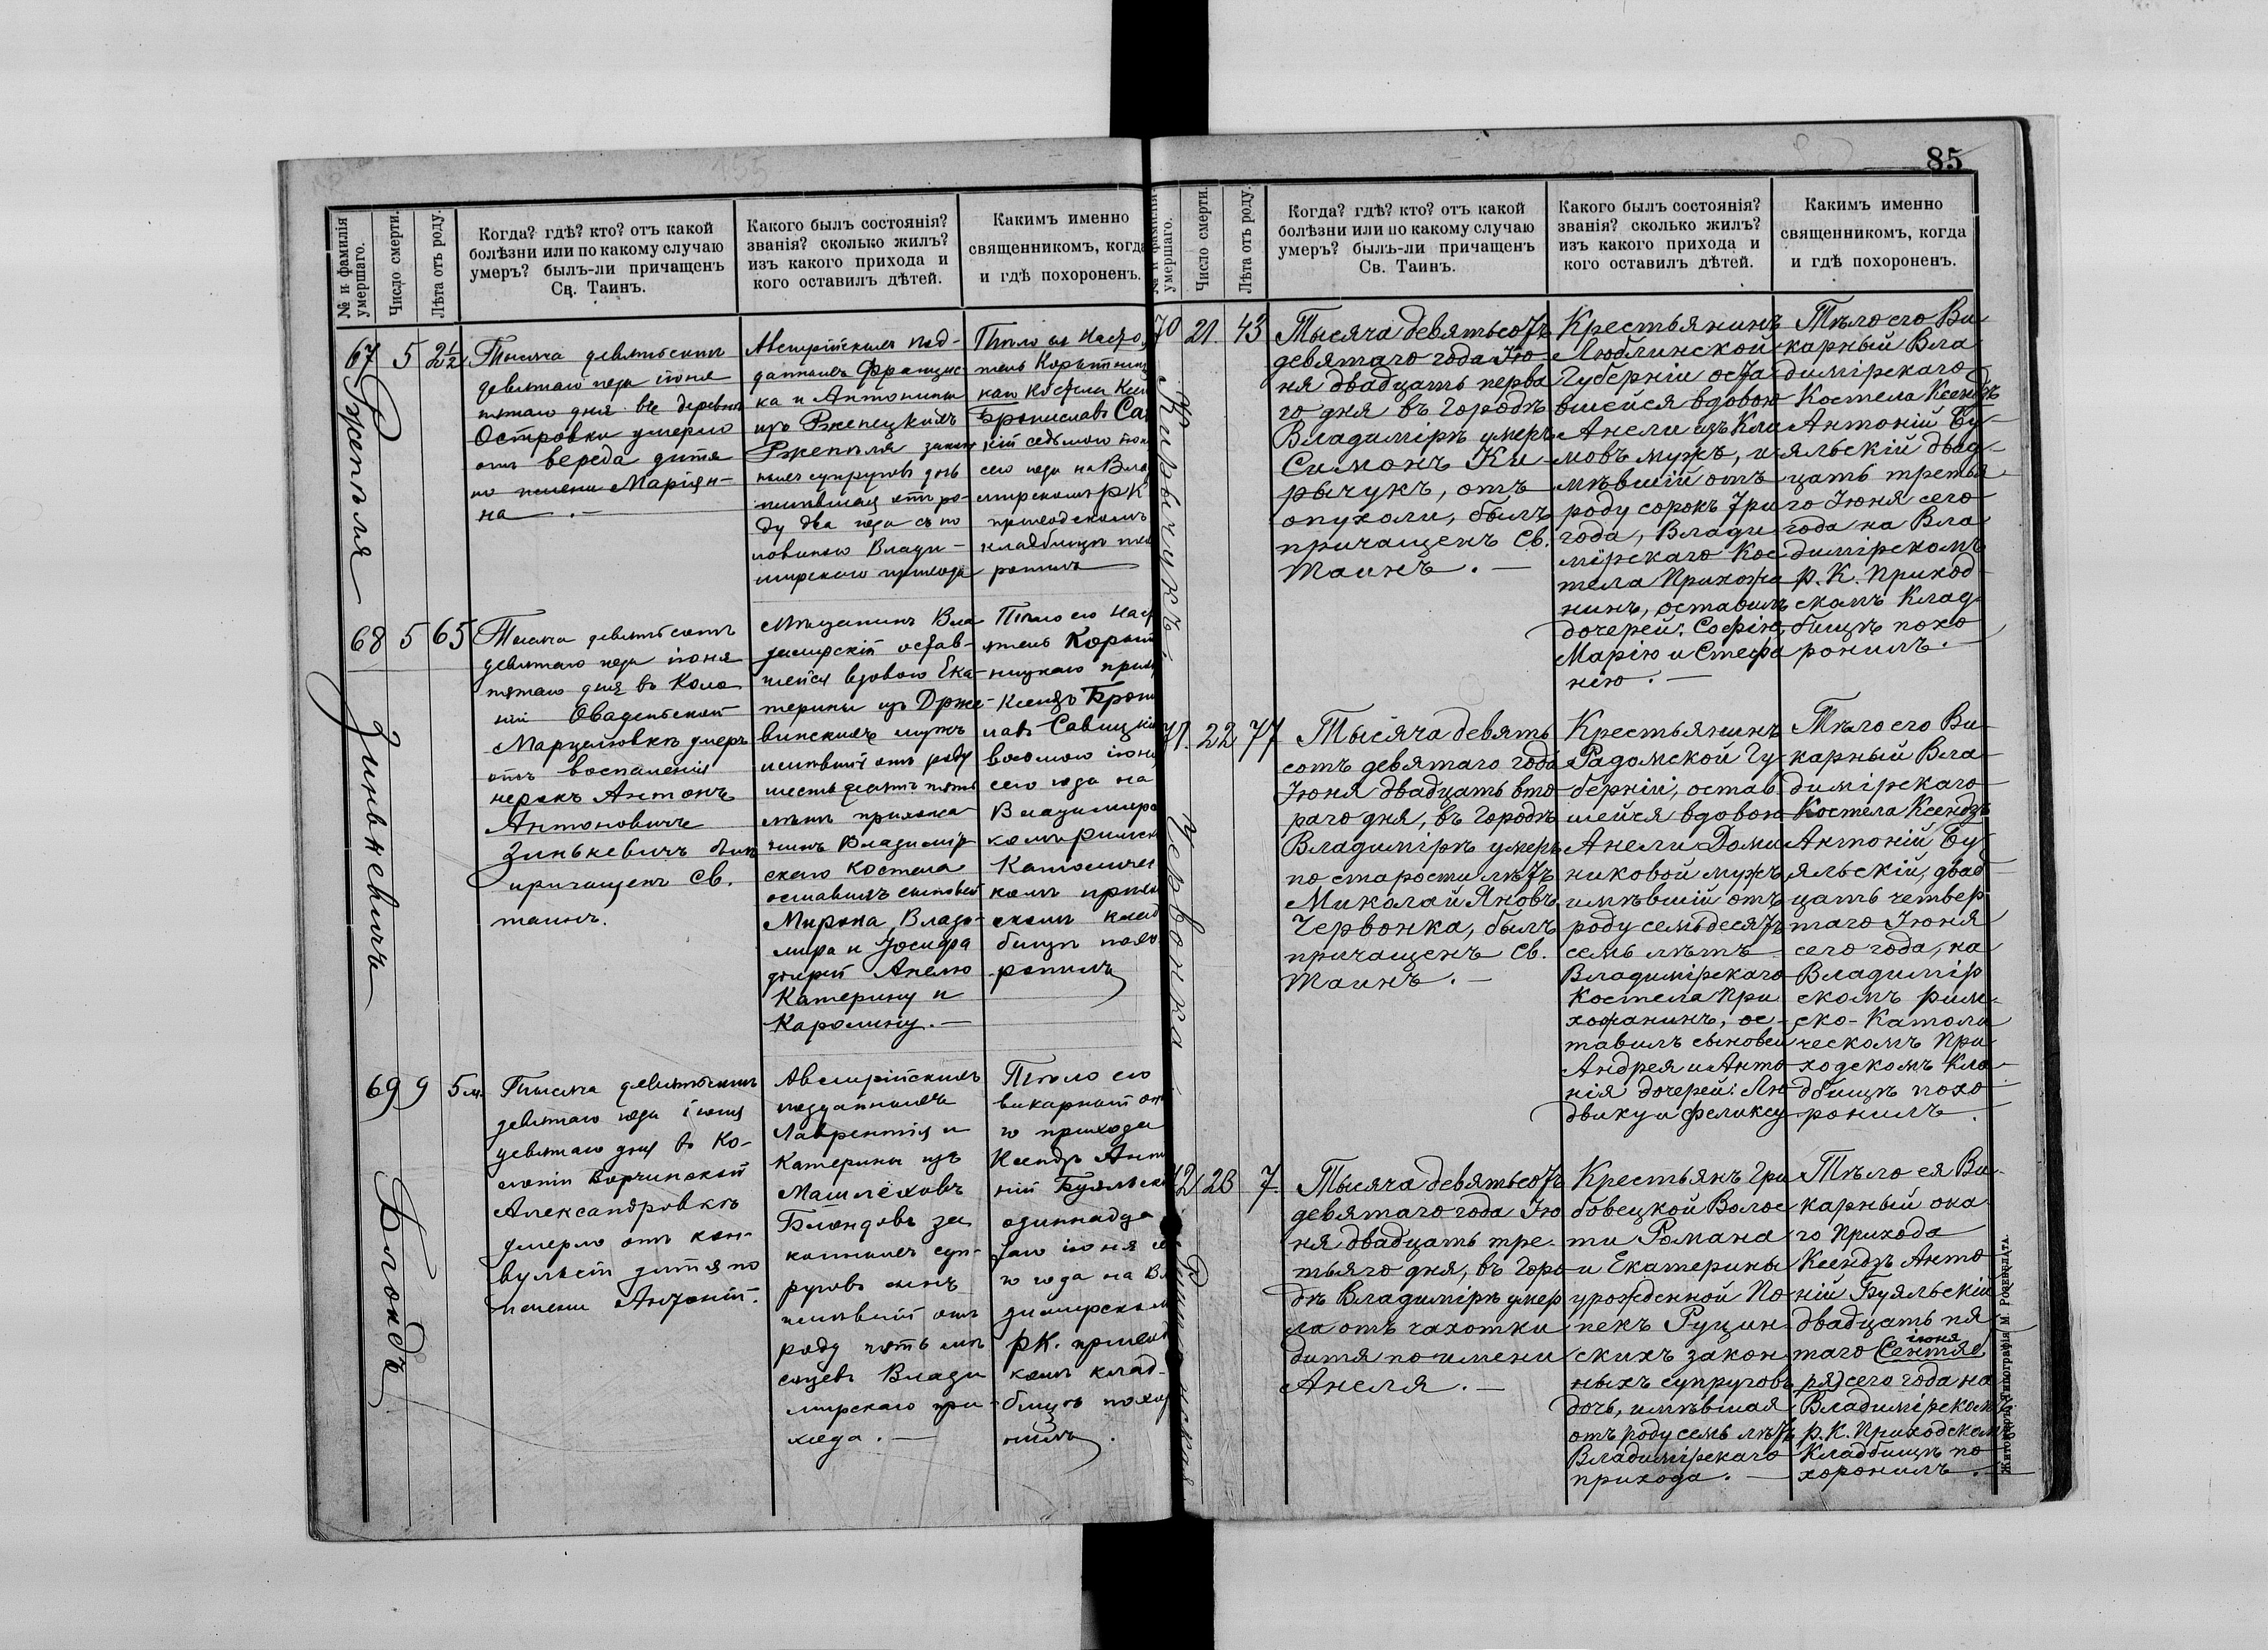 85
№ и фамилія умершаго.
Число смерти.
Лѣта отъ роду.
Когда? гдѣ? кто? отъ какой
болѣзни или по какому случаю
умеръ? былъ-ли причащенъ
Св. Таинъ.
Какого былъ состоянія?
званія? сколько жилъ?
изъ какого прихода и
кого оставилъ дѣтей.
Какимъ именно
священникомъ, когда
и гдѣ похороненъ.
67
5
2½
Тысяча девятьсотъ
девятаго года іюня
пятаго дня въ деревнѣ
Островки умерло
отъ вереда дитя
по имени Маріян-
на .—
Австрійскихъ под-
данныхъ Францис-
ка и Антонины
изъ
закон
ныхъ супруговъ дочь
имѣвшая отъ ро-
ду два года съ по
ловиною Влади-
мирского прихода
Тѣло ея Насто
тель
каго Костела Ксен
Брониславъ Са
кій седьмого іюн
сего года на Вла
мирскомъ РК
приходскомъ
кладбищѣ пох
ронилъ
68
5
65
Зинькевичъ
Тысяча девятьсотъ
девятаго года іюня
пятаго дня въ Коло
ніи Оваденьской
Марцелювкѣ умеръ
отъ воспаленія
Антонъ
Антоновичъ
Зинькевичъ былъ
причащенъ Св.
таинъ.
Мѣщанинъ Вла
димирскій остав-
шейся вдовою Ека-
терины изъ Држе-
винскихъ мужъ
имѣвшій отъ роду
шестьдесятъ пять
лѣтъ прихожа
нинъ Владимір
скаго Костела
оставилъ сыновей
Мирона, Влади-
мира и Іосифа
дочерей Анелю
Катерину и
Каролину.—
Тѣло его Наст
ятель Корыт
ницкаго прих
Ксендзъ Брони
лавъ Савицкі
восьмого іюн
сего года на
Владимирс
комъ Римск
Католичес
комъ прихо
скомъ клад
бищѣ похо
ронилъ
69
9
5 м.
Блондъ
Тысяча девятьсотъ
девятаго года іюня
девятаго дня въ Ко-
лоніи Ворчинской
Александровкѣ
умерло отъ кон-
вульсій дитя по
имени Антоній.
Австрійскихъ
подданныхъ
Лаврентія и
Катерины изъ
Машлёховъ
Блондовъ за
конныхъ суп-
руговъ сынъ
имѣвшій отъ
роду пять мѣ
сяцевъ Влади
мирскаго при-
хода .—
Тѣло его
викарный он
го прихода
Ксендзъ Анто
ній Буяльск
одиннадца
таго іюня се
го года на Вл
димирском
РК. приход
комъ клад-
бищѣ похор
нилъ .
№ и фамилія умершаго.
Число смерти.
Лѣта отъ роду.
Когда? гдѣ? кто? отъ какой
болѣзни или по какому случаю
умеръ? былъ-ли причащенъ
Св. Таинъ.
Какого былъ состоянія?
званія? сколько жилъ?
изъ какого прихода и
кого оставилъ дѣтей.
Какимъ именно
священникомъ, когда
и гдѣ похороненъ.
70
21.
43
Кирычукъ
Тысяча девятьсотъ
девятаго года Ію
ня двадцать перва
го дня въ Городѣ
Владимірѣ умеръ
Симонъ Ки-
рычукъ, отъ
опухоли, былъ
причащенъ Св.
Таинъ .—
Крестьянинъ
Люблинской
Губерніи оста
вшейся вдовою
Анели изъ Кли
мовъ мужъ, и
мѣвшій отъ
роду сорокъ три
года, Влади
мірскаго Кос
тела Прихожа
нинъ, оставилъ
дочерей: Софію,
Марію и Стефа
нію .—
Тѣло его Ви
карный Вла
димірскаго
Костела Ксендзъ
Антоній Бу-
яльскій двад-
цать третья
го Іюня сего
года на Вла
димірскомъ
Р.К. Приход
скомъ Клад
бищѣ похо
ронилъ.—
71.
22
77
Червонка
Тысяча девять
сотъ девятаго года
Іюня двадцать вто
раго дня, въ Городѣ
Владимірѣ умеръ
по старости лѣтъ
Миколай Яновъ
Червонка, былъ
причащенъ Св.
Таинъ .—
Крестьянинъ
Радомской Гу-
берніи, остав
шейся вдовою
Анели Доми
никовой мужъ
имѣвшій отъ
роду семьдесятъ
семь лѣтъ
Владимірскаго
Костела При
хожанинъ, ос-
тавилъ сыновей
Андрея и Анто
нія дочерей: Лю
двику и Феликсу
Тѣло его Ви
карный Вла
димірскаго
Костела Ксендзъ
Антоній Бу
яльскій, двад
цать четвер
таго Іюня
сего года, на
Владимір
скомъ рим-
ско-Католи
ческомъ При
ходскомъ Кла-
дбищѣ похо
ронилъ .
72
23
7.
Тысяча девятьсотъ
девятаго года Ію
ня двадцать тре-
тьяго дня, въ Горо
дѣ Владимірѣ умер
ла отъ чахотки
дитя по имени
Анеля .—
Крестьянъ Гри
бовецкой Волос
ти Романа
и Екатерины
урожденной По
пекъ Руцин
скихъ закон-
ныхъ супруговъ
дочь, имѣвшая
отъ роду семь лѣтъ
Владимірскаго
прихода .—
Тѣло ея Ви-
карный она
го Прихода
Ксендзъ Анто
ній Буяльскій
двадцать пя-
іюня
таго (Сентяб
ря) сего года на
Владимірском
Р.К. Приходскомъ
Кладбищѣ по
хоронилъ.—
Житоміръ, Типографія М. Роненталя.